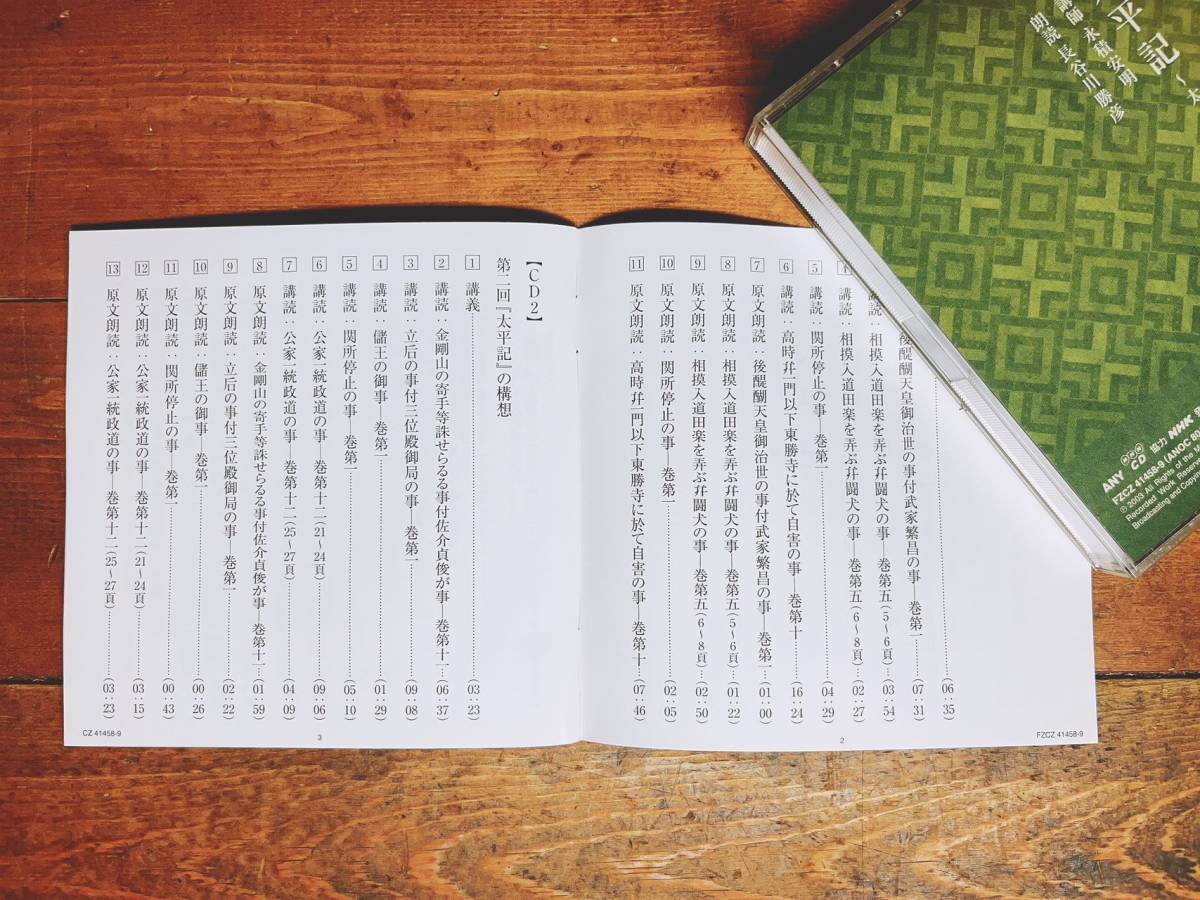 平記
講師 永積安明
朗読 長谷川勝彦
ANY CD 協力 NHK
FZCZ 41458-9
℗2003 All Rights of the
Recorded Work Reser
Broadcasting and Copying
(06:35)
後醍醐天皇御治世の事付武家繁昌の事―巻第一……(07:31)
講読：相摸入道田楽を弄ぶ幷闘犬の事―巻第五(5～6頁)……(03:54)
4 講読：相摸入道田楽を弄ぶ幷闘犬の事―巻第五(6～8頁)……(02:27)
5 講読：関所停止の事―巻第一……(04:29)
6 講読：高時幷一門以下東勝寺に於て自害の事―巻第十……(16:24)
7 原文朗読：後醍醐天皇御治世の事付武家繁昌の事―巻第一……(01:00)
8 原文朗読：相摸入道田楽を弄ぶ幷闘犬の事―巻第五(5～6頁)……(01:22)
9 原文朗読：相摸入道田楽を弄ぶ幷闘犬の事―巻第五(6～8頁)……(02:50)
10 原文朗読：関所停止の事―巻第一……(02:05)
11 原文朗読：高時幷一門以下東勝寺に於て自害の事―巻第十……(07:46)
2
FZCZ 41458-9
【CD2】
第二回『太平記』の構想
1 講義……(03:23)
2 講読：金剛山の寄手等誅せらるる事付佐介貞俊が事―巻第十一……(06:37)
3 講読：立后の事付三位殿御局の事―巻第一……(09:08)
4 講読：儲王の御事―巻第一……(01:29)
5 講読：関所停止の事―巻第一……(05:10)
6 講読：公家一統政道の事―巻第十二(21～24頁)……(09:06)
7 講読：公家一統政道の事―巻第十二(25～27頁)……(04:09)
8 原文朗読：金剛山の寄手等誅せらるる事付佐介貞俊が事―巻第十一……(01:59)
9 原文朗読：立后の事付三位殿御局の事―巻第一……(02:22)
10 原文朗読：儲王の御事―巻第一……(00:26)
11 原文朗読：関所停止の事―巻第一……(00:43)
12 原文朗読：公家一統政道の事―巻第十二(21～24頁)……(03:15)
13 原文朗読：公家一統政道の事―巻第十二(25～27頁)……(03:23)
3
CZ 41458-9